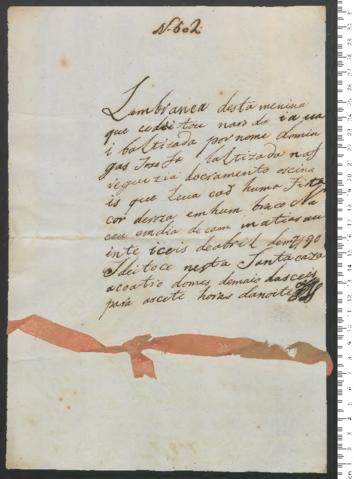 N. 602
Lembranca desta menina
que cedeitou na ro do ia ua
i baltizada por nome domin
gas Baltizada naf
reguizia do cramento
is que Leua cod huma Fita
cor de roza em hum braco Na
ceu em dia de
inte iceis de abril de 1790
I deitoce nesta Santa caza
a coatro do mes de maio das ceis
para as cete horas da noite